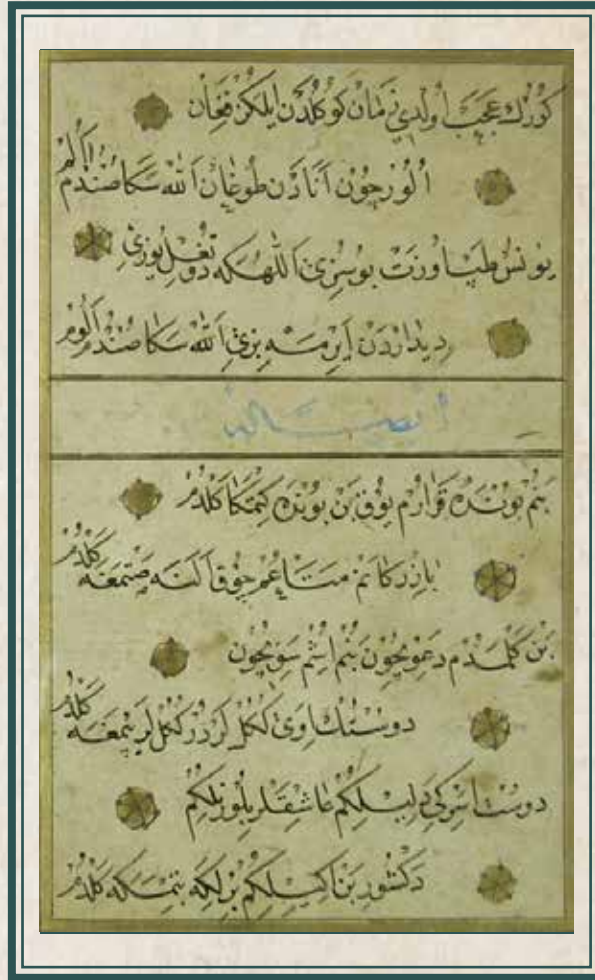 كورك عجب اولدي زمان كوكلدن ايلكز فغان
الور جون انادن طوغان الله سكا صندم الم
يونس طپا اورت بو سزى اللهكه دوتغل يوزى
ديداردن ايرمسه بزى الله سكا صندم الوم
بنم بونده قرارم يوق بن بونده كتمكا كلدم
بازركانم متاعم جوق آلنه صتمغه كلدم
بن كلمدم دعوىجون بنم اشم سوىجون
دوستك اوى كككلر در ككل لر يتمغه كلدم
دوست اسركى دليلكم عاشقلر بلور نلكم
دكشورين اكيلكم برلكه بتمكه كلدم